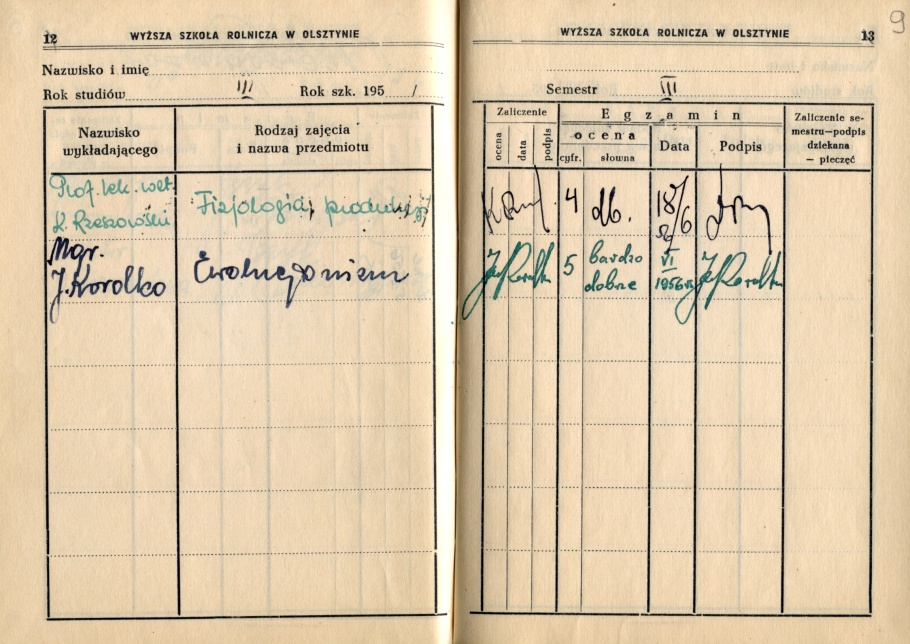 9
12 WYŻSZA SZKOŁA ROLNICZA W OLSZTYNIE
Nazwisko i imię
Rok studiów III Rok szk. 195 /
Nazwisko wykładającego
Rodzaj zajęcia i nazwa przedmiotu
Prof. lek. wet.
K. Rzeszowski
Fizjologia produkcji
Mgr.
J. Korolko
Ewolucjonizm
WYŻSZA SZKOŁA ROLNICZA W OLSZTYNIE 13
Semestr III
Zaliczenie
ocena
data
podpis
Egzamin
ocena
cyfr.
słowna
Data
Podpis
Zaliczenie se-
mestru—podpis
dziekana
— pieczęć
4 db. 18/6
5 bardzo dobrze VI 1956 r. J. Korolko